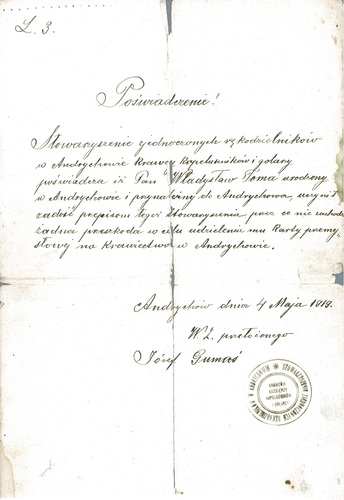 L. 3.
Poświadczenie!
Stowarzyszenie zjednoczonych rękodzielników
w Andrychowie Krawcy Kapeluszników i golarzy
poświadcza iż Pan Władysław Toma urodzony
w Andrychowie i przynależny do Andrychowa, uczynił
zadość przepisom tegoż stowarzyszenia przez co nie zachodzi
żadna przeszkoda w celu udzielenia mu Karty przemy-
słowej na Krawiectwo w Andrychowie.
Andrychów dnia 4 Maja 1919.
W Z. przełożonego
Józef Gumaś